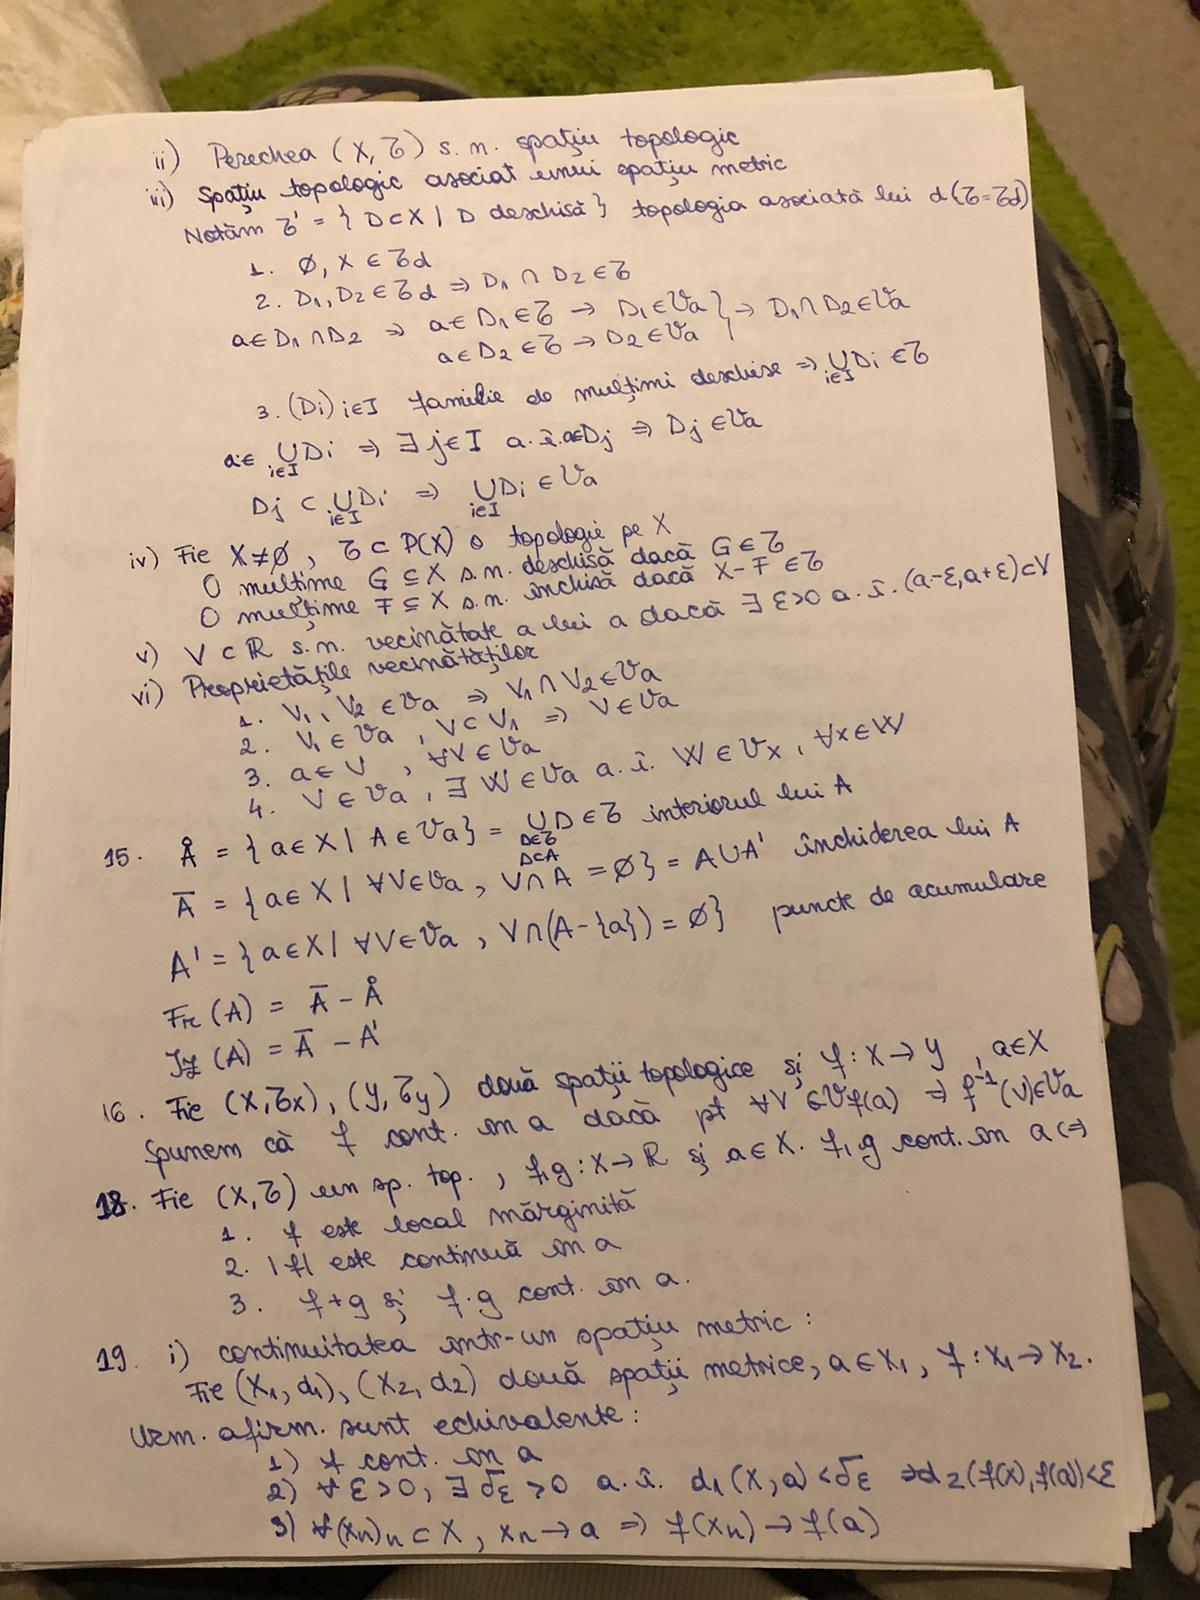 ii) Perechea (X, τ) s.n. spațiu topologic
iii) Spațiu topologic asociat unui spațiu metric
Notăm τ' = { D⊂X | D deschisă } topologia asociată lui d {τ=τd}
1. ∅, X ∈ τd
2. D1, D2 ∈ τd ⇒ D1 ∩ D2 ∈ τ
a∈ D1 ∩ D2 ⇒ a∈ D1 ∈ τ → D1 ∈ Va } → D1 ∩ D2 ∈ Va
a∈ D2 ∈ τ → D2 ∈ Va
3. (Di) i∈I familie de mulțimi deschise ⇒ ∪ i∈I Di ∈ τ
a∈ ∪ i∈I Di ⇒ ∃ j∈I a.î. a∈Dj ⇒ Dj ∈ Va
Dj ⊂ ∪ i∈I Di ⇒ ∪ i∈I Di ∈ Va
iv) Fie X≠∅, τ ⊂ P(X) o topologie pe X
O mulțime G ⊆ X s.n. deschisă dacă G ∈ τ
O mulțime F ⊆ X s.n. închisă dacă X-F ∈ τ
v) V ⊂ ℝ s.n. vecinătate a lui a dacă ∃ ε>0 a.î. (a-ε, a+ε)⊂V
vi) Proprietățile vecinătăților
1. V1, V2 ∈ Va ⇒ V1 ∩ V2 ∈ Va
2. V1 ∈ Va, V ⊂ V1 ⇒ V ∈ Va
3. a ∈ V, ∀V ∈ Va
4. V ∈ Va, ∃ W ∈ Va a.î. W ∈ Vx, ∀x ∈ W
15. Å = { a∈ X | A ∈ Va } = ∪ D∈τ D⊂A D ∈ τ interiorul lui A
A̅ = { a∈ X | ∀V∈Va, V∩A = ∅ } = A∪A' închiderea lui A
A' = { a∈X | ∀V∈Va, V∩(A-{a}) = ∅ } puncte de acumulare
Fr (A) = A̅ - Å
Iz (A) = A̅ - A'
16. Fie (X, τx), (Y, τy) două spații topologice și f: X → Y, a∈X
Spunem că f cont. în a dacă pt ∀V ∈ Vf(a) ⇒ f⁻¹(V)∈Va
18. Fie (X, τ) un sp. top., f,g : X → ℝ și a∈ X. f, g cont. în a ⇔
1. f este local mărginită
2. |f| este continuă în a
3. f+g și f·g cont. în a.
19. i) continuitatea într-un spațiu metric :
Fie (X1, d1), (X2, d2) două spații metrice, a∈ X1, f: X1 → X2.
Urm. afirm. sunt echivalente :
1) f cont. în a
2) ∀ ε>0, ∃ δε >0 a.î. d1 (x, a) < δε ⇒ d2 (f(x), f(a))<ε
3) ∀(xn)n ⊂ X, xn → a ⇒ f(xn) → f(a)